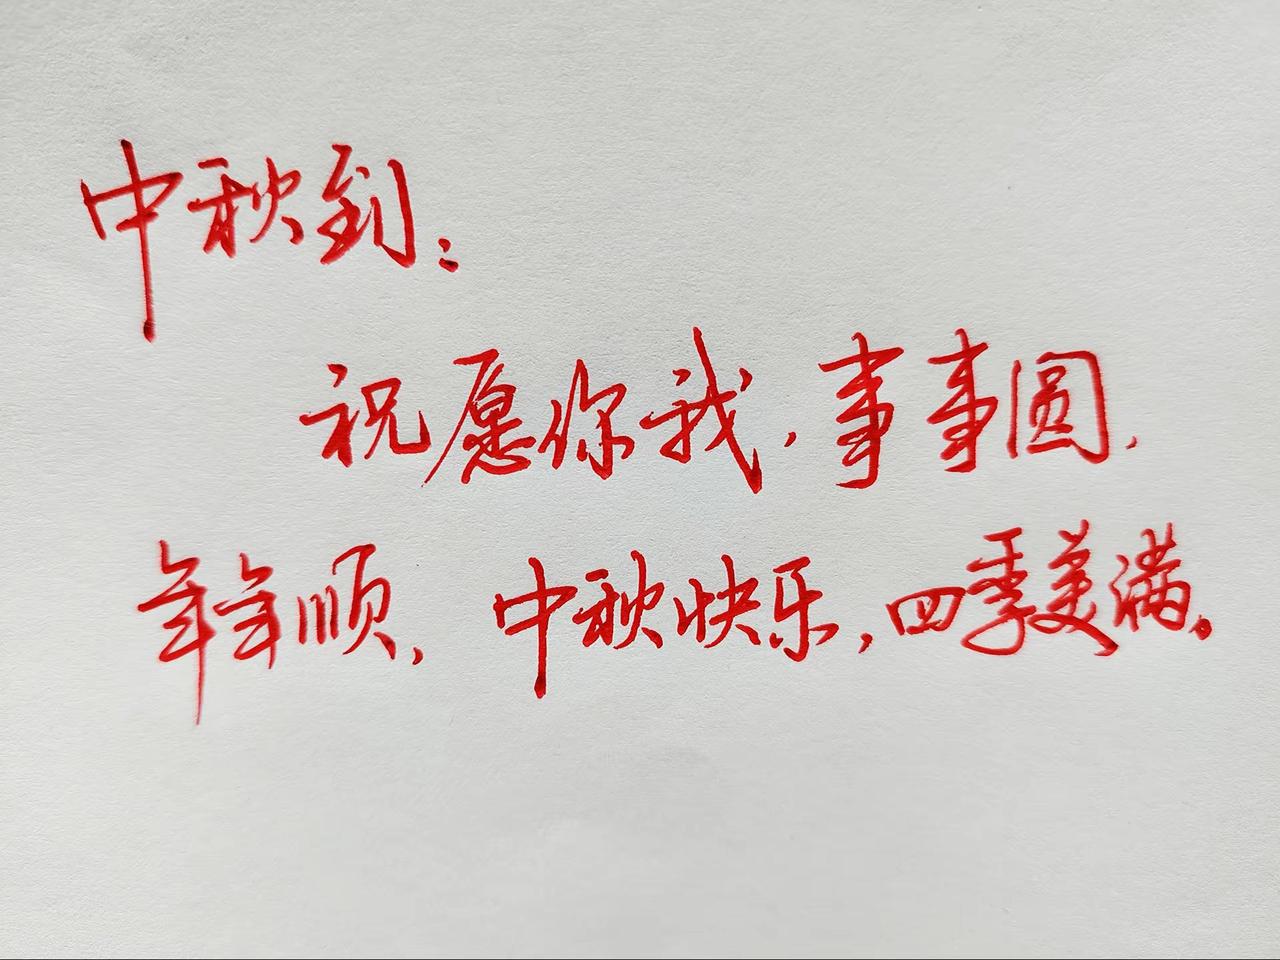 中秋到：
祝愿你我，事事圆，
年年顺，中秋快乐，四季美满。